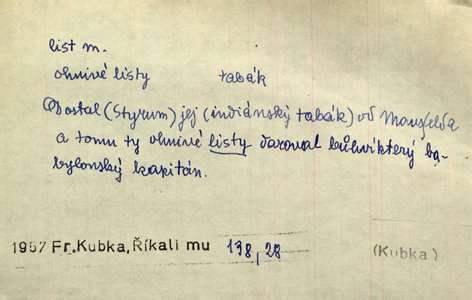 list m.
ohnivé listy tabák
Dostal (Styrum) jej (indiánský tabák) od Mansfelda
a tomu ty ohnivé listy daroval bůhvíkterý ba-
bylonský kapitán.
1957 Fr.Kubka, Říkali mu 198, 28
(Kubka)